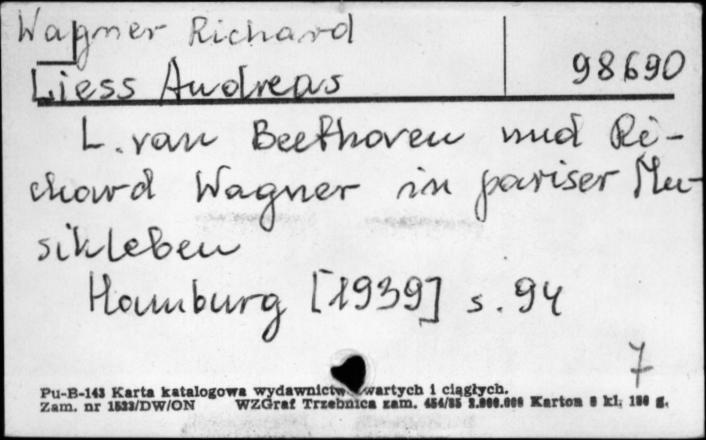 Wagner Richard
Liess Andreas
98690
L. van Beethoven und Ri-
chard Wagner im pariser Mu-
sikleben
Hamburg [1939] s. 94
7
Pu-B-143 Karta katalogowa wydawnictw zwartych i ciągłych.
Zam. nr 1533/DW/ON WZGraf Trzebnica zam. 454/85 2.000.000 Karton 8 kl, 180 g.